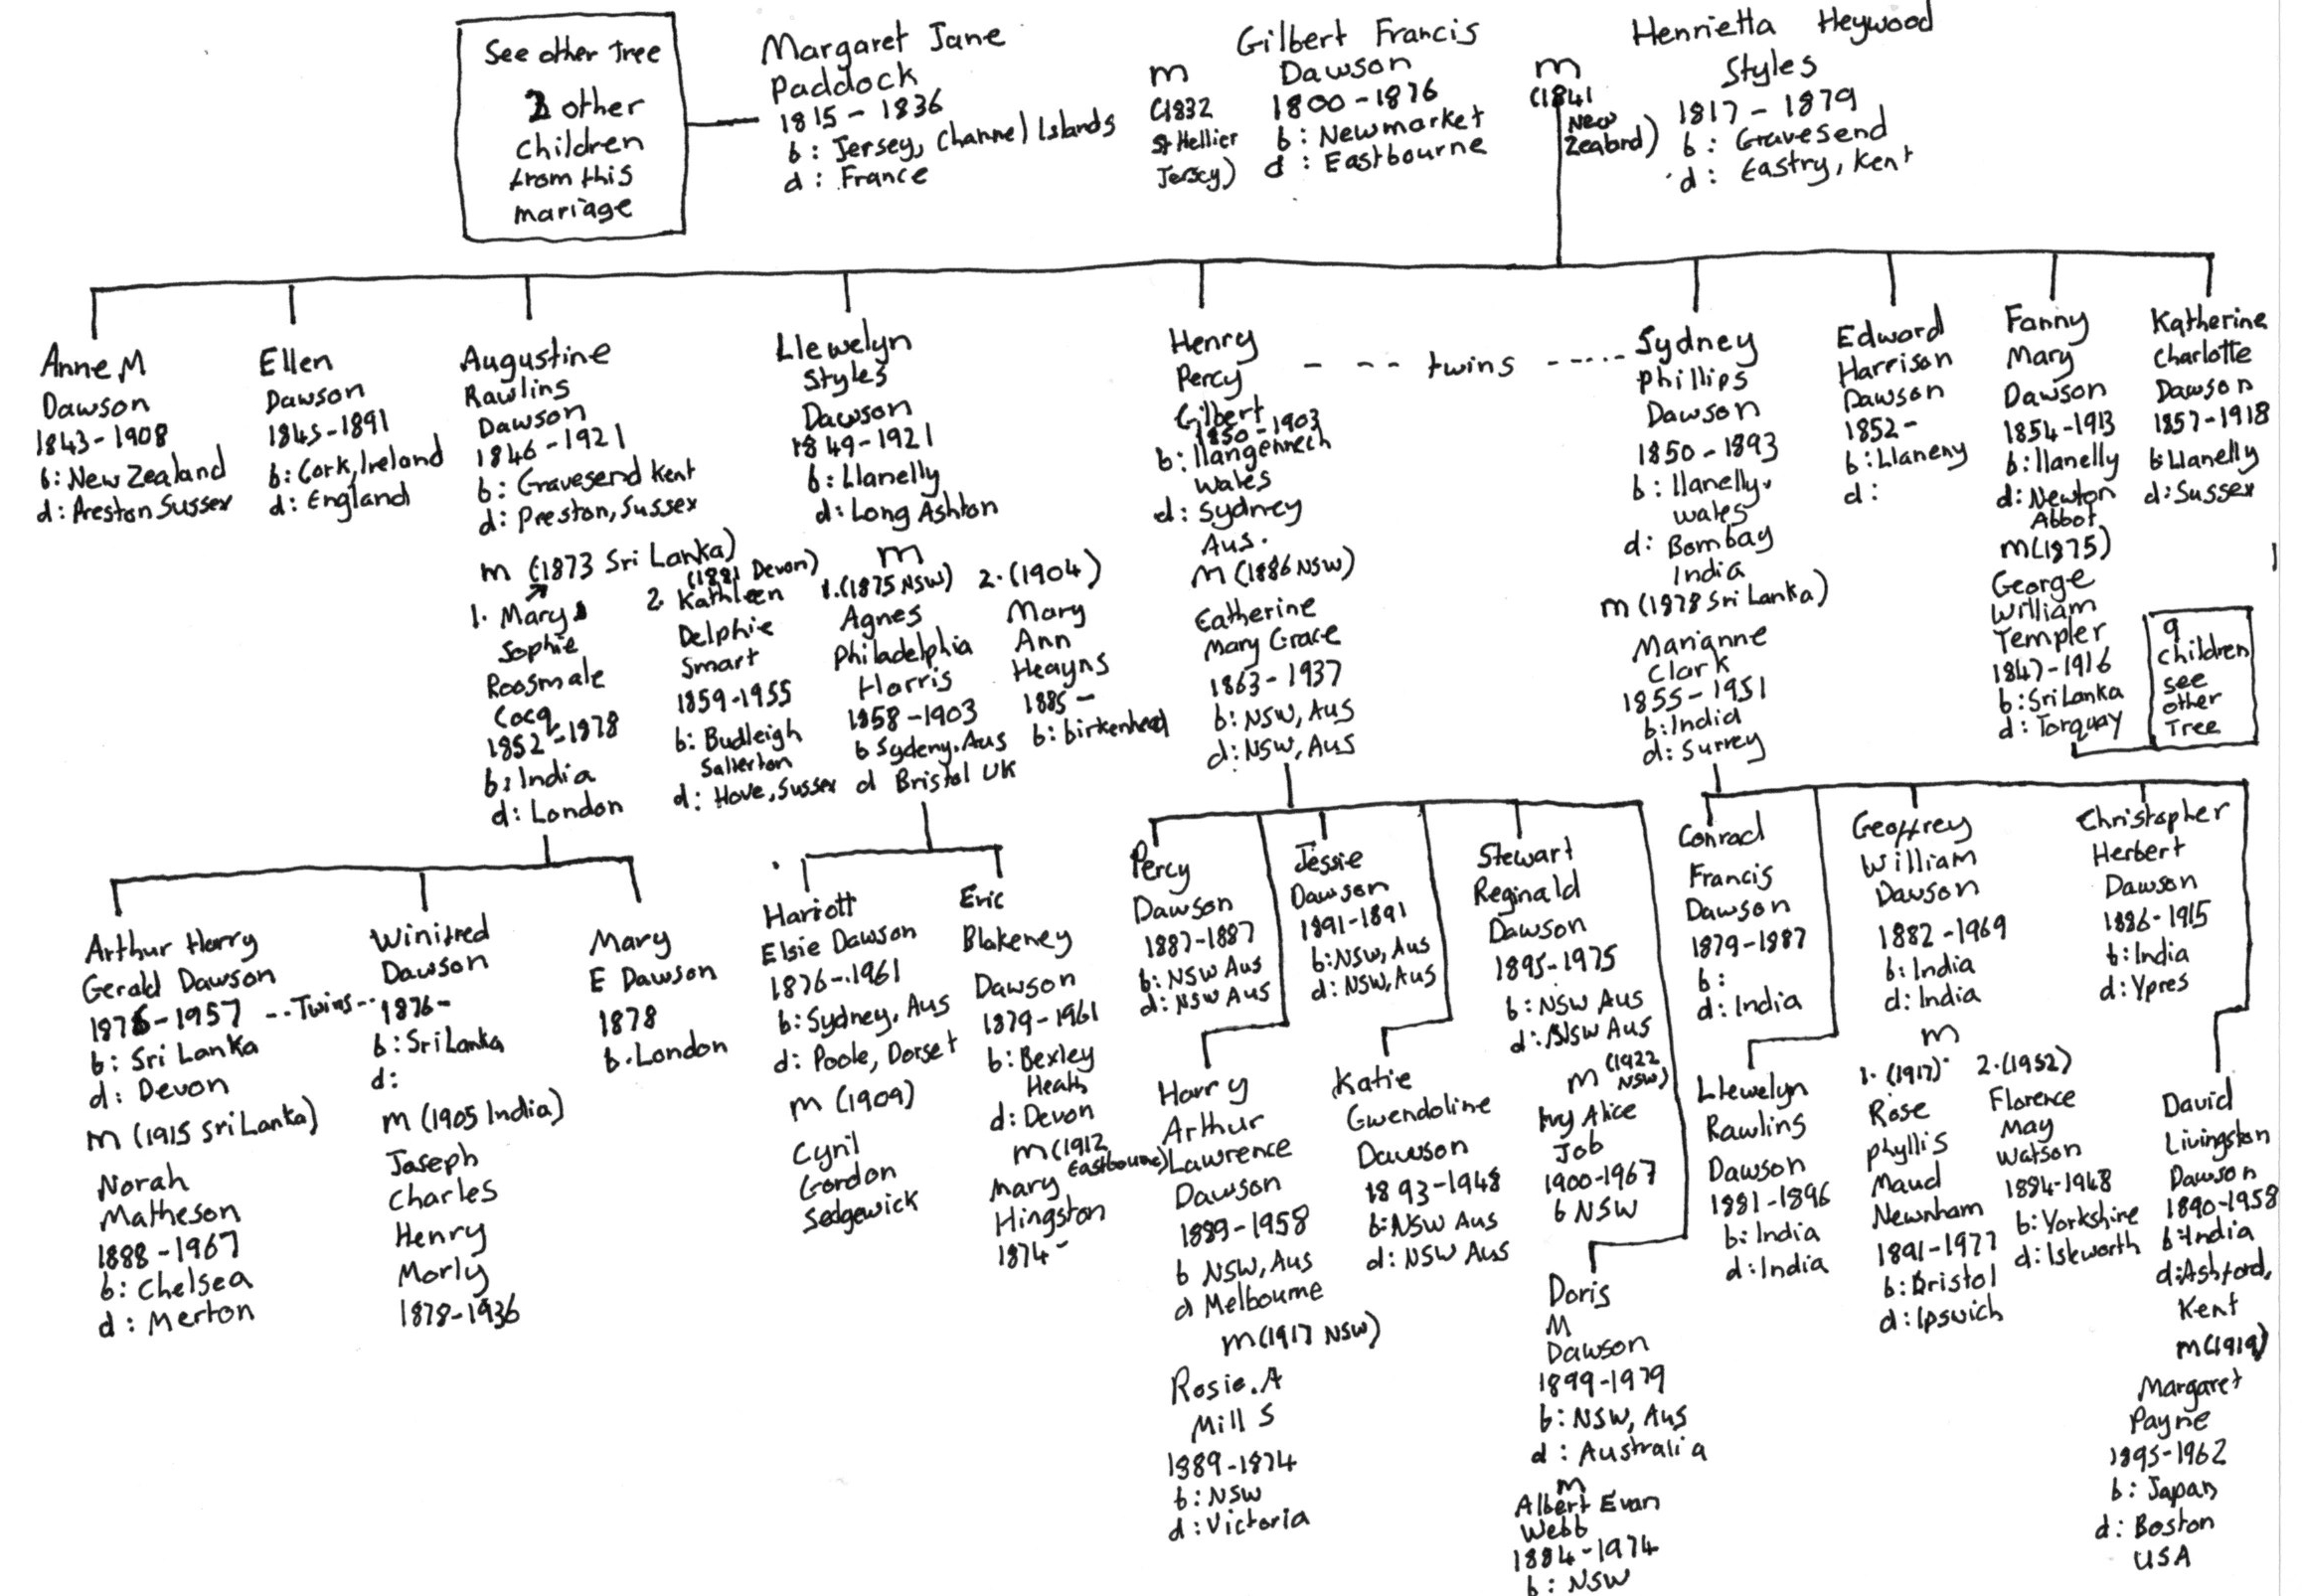 See other Tree
2 other
children
from this
mariage
Margaret Jane
Paddock
1815 - 1836
b: Jersey, Channel Islands
d: France
m
(1832
St Hellier
Jersey)
Gilbert Francis
Dawson
1800 - 1876
b: Newmarket
d: Eastbourne
m
(1841
New
Zealand)
Henrietta Heywood
Styles
1817 - 1879
b: Gravesend
d: Eastry, Kent
Anne M
Dawson
1843-1908
b: New Zealand
d: Preston Sussex
Ellen
Dawson
1845-1891
b: Cork, Ireland
d: England
Augustine
Rawlins
Dawson
1846-1921
b: Gravesend Kent
d: Preston, Sussex
m (1873 Sri Lanka)
1. Mary
Sophie
Roosmale
Cocq
1852-1878
b: India
d: London
(1881 Devon)
2. Kathleen
Delphie
Smart
1859-1955
b: Budleigh
Salterton
d: Hove, Sussex
Llewelyn
Styles
Dawson
1849-1921
b: Llanelly
d: Long Ashton
m
1. (1875 NSW)
Agnes
Philadelphia
Harris
1858-1903
b Sydeny, Aus
d Bristol UK
2. (1904)
Mary
Ann
Heayns
1885-
b: birkenhead
Henry
Percy
Gilbert
1850-1903
b: llangennech
Wales
d: Sydney
Aus.
m (1886 NSW)
Catherine
Mary Grace
1863-1937
b: NSW, Aus
d: NSW, Aus
--- twins ----
Sydney
Phillips
Dawson
1850-1893
b: llanelly.
wales
d: Bombay
India
m (1878 Sri Lanka)
Marianne
Clark
1855-1951
b: India
d: Surrey
Edward
Harrison
Dawson
1852-
b: Llaneny
d:
Fanny
Mary
Dawson
1854-1913
b: llanelly
d: Newton
Abbot
m (1875)
George
William
Templer
1847-1916
b: Sri Lanka
d: Torquay
9
children
see
other
Tree
Katherine
Charlotte
Dawson
1857-1918
b: Llanelly
d: Sussex
Arthur Harry
Gerald Dawson
1876-1957 --Twins--
b: Sri Lanka
d: Devon
m (1915 Sri Lanka)
Norah
Matheson
1888-1967
b: Chelsea
d: Merton
Winifred
Dawson
1876-
b: Sri Lanka
d:
m (1905 India)
Joseph
Charles
Henry
Morly
1878-1936
Mary
E Dawson
1878
b. London
Hariott
Elsie Dawson
1876-1961
b: Sydney, Aus
d: Poole, Dorset
m (1909)
Cyril
Gordon
Sedgewick
Eric
Blakeney
Dawson
1879-1961
b: Bexley
Heath
d: Devon
m (1912
Eastbourne)
Mary
Hingston
1874-
Percy
Dawson
1887-1887
b: NSW Aus
d: NSW Aus
Harry
Arthur
Lawrence
Dawson
1889-1958
b NSW, Aus
d Melbourne
m (1917 NSW)
Rosie. A
Mill S
1889-1874
b: NSW
d: Victoria
Jessie
Dawson
1891-1891
b: NSW, Aus
d: NSW, Aus
Katie
Gwendoline
Dawson
1893-1948
b: NSW Aus
d: NSW Aus
Stewart
Reginald
Dawson
1895-1975
b: NSW Aus
d: NSW Aus
m (1922
NSW)
Ivy Alice
Job
1900-1967
b NSW
Doris
M
Dawson
1899-1979
b: NSW, Aus
d: Australia
m
Albert Evan
Webb
1884-1974
b: NSW
Conrad
Francis
Dawson
1879-1887
b:
d: India
Llewelyn
Rawlins
Dawson
1881-1896
b: India
d: India
Geoffrey
William
Dawson
1882-1969
b: India
d: India
m
1. (1917)
Rose
phyllis
Maud
Newnham
1891-1977
b: Bristol
d: Ipswich
2. (1952)
Florence
May
Watson
1884-1948
b: Yorkshire
d: Isleworth
Christopher
Herbert
Dawson
1886-1915
b: India
d: Ypres
David
Livingston
Dawson
1890-1958
b: India
d: Ashford,
Kent
m (1919)
Margaret
Payne
1895-1962
b: Japan
d: Boston
USA